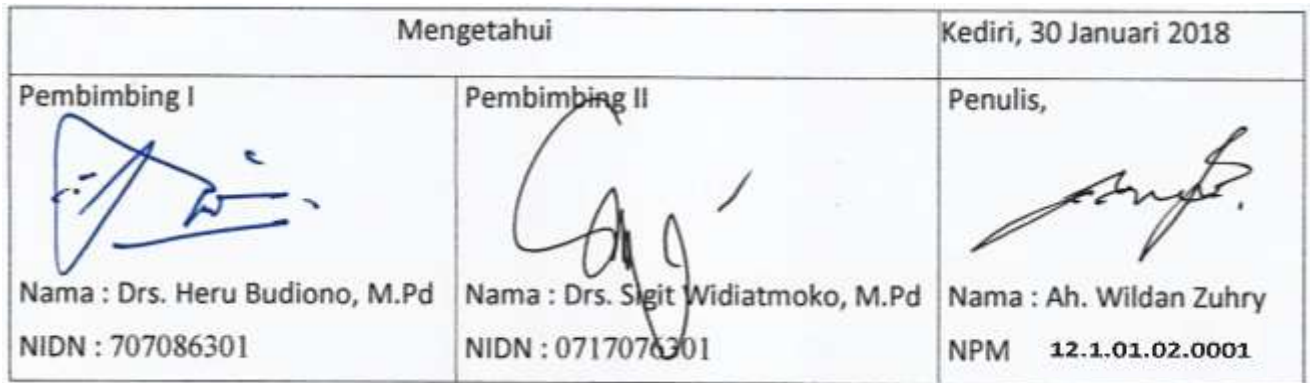 Mengetahui
Kediri, 30 Januari 2018
Pembimbing I
Nama : Drs. Heru Budiono, M.Pd
NIDN : 707086301
Pembimbing II
Nama : Drs. Sigit Widiatmoko, M.Pd
NIDN : 0717076301
Penulis,
Nama : Ah. Wildan Zuhry
NPM 12.1.01.02.0001